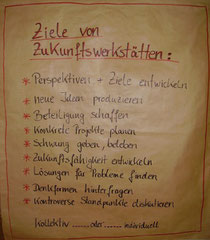 Ziele von
Zukunftswerkstätten:
* Perspektiven + Ziele entwickeln
* neue Ideen produzieren
* Beteiligung schaffen
* Konkrete Projekte planen
* Schwung geben, beleben
* Zukunftsfähigkeit entwickeln
* Lösungen für Probleme finden
* Denkformen hinterfragen
* Kontroverse Standpunkte diskutieren
Kollektiv ...... oder ...... individuell